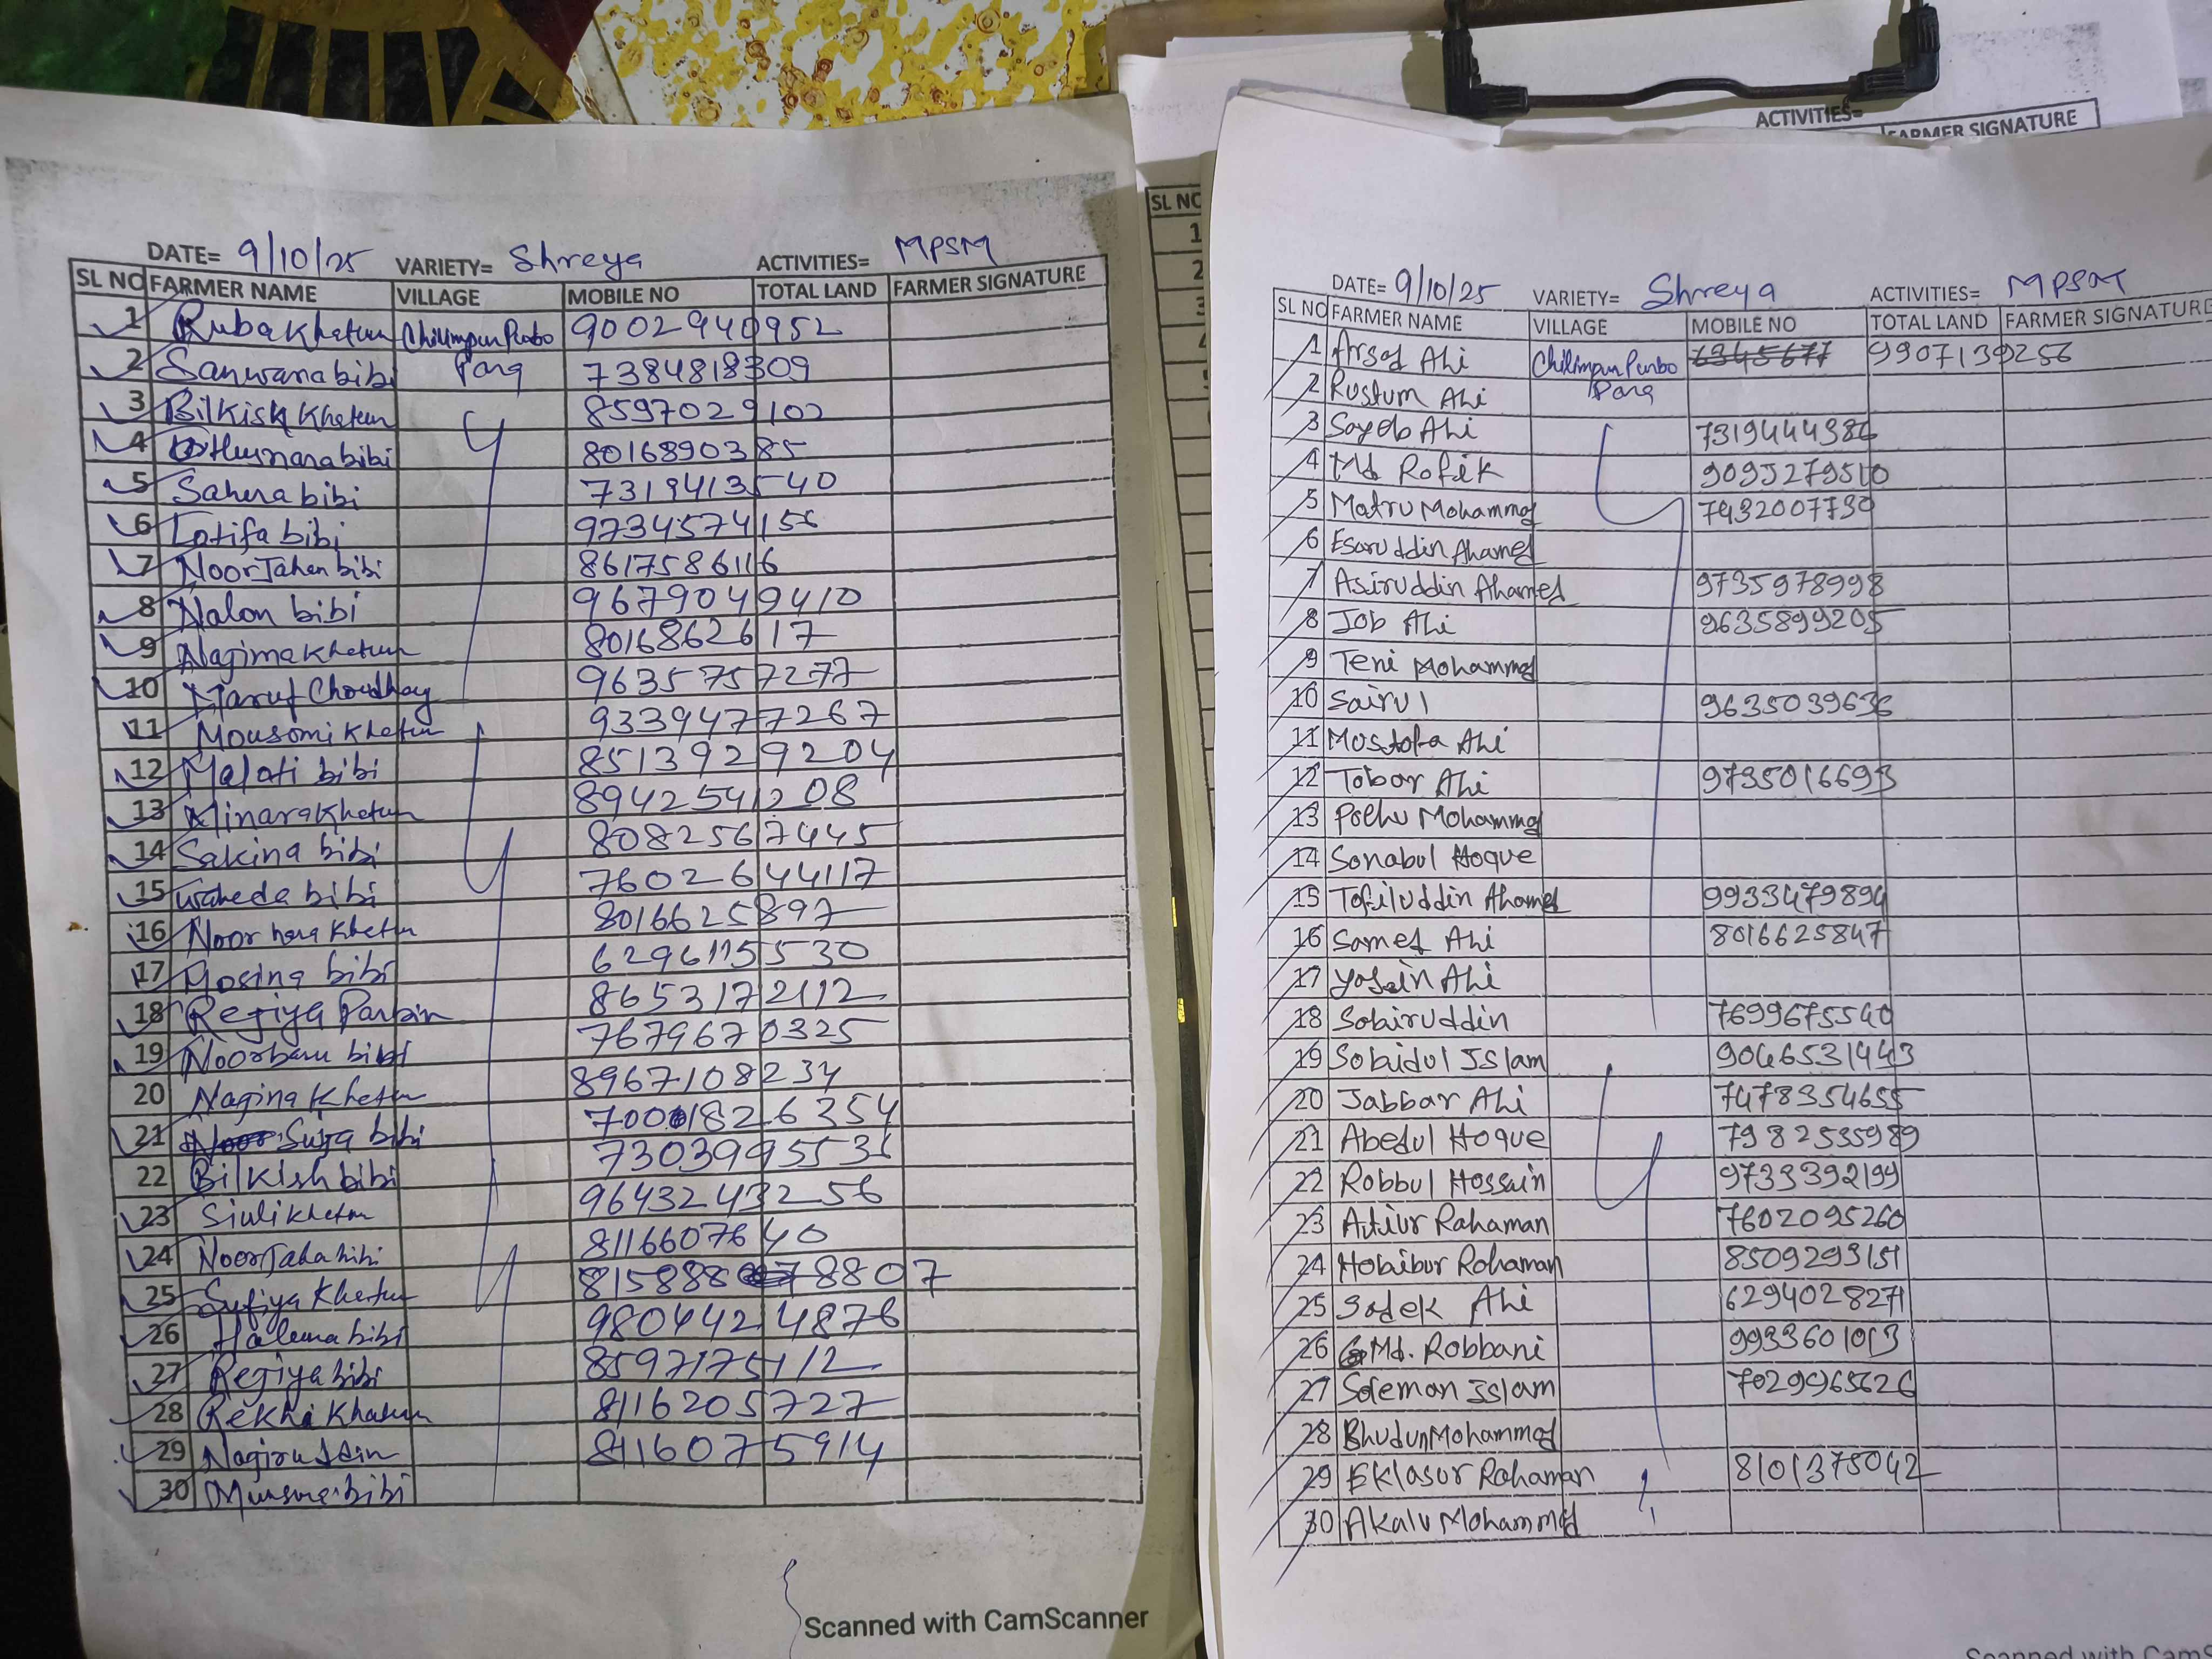 DATE= 9/10/25 VARIETY= Shreya ACTIVITIES= MPSM
SL NO FARMER NAME VILLAGE MOBILE NO TOTAL LAND FARMER SIGNATURE
1 Ruba Khatun Chilimpur Purbo 9002940952
2 Sanwara bibi Para 7384818309
3 Bilkish Khatun 8597029102
4 Husnara bibi 8016890385
5 Sahera bibi 7319413540
6 Latifa bibi 9734574156
7 Noor Jahan bibi 8617586116
8 Nalon bibi 9679049410
9 Nagima Khatun 8016862617
10 Maruf Choudhay 9635757277
11 Mousomi Khatun 9339477267
12 Malati bibi 8513929204
13 Minara Khatun 8942541208
14 Sakina bibi 8082567445
15 Waheda bibi 7602644117
16 Noor hera Khatun 8016625897
17 Mosina bibi 6296115530
18 Rejiya Parbin 8653172112
19 Noorbanu bibi 7679670325
20 Nagina Khatun 8967108234
21 Suja bibi 7001826354
22 Bilkish bibi 730399553
23 Siuli Khatun 9643243256
24 Noor Jaha bibi 8116607640
25 Sufiya Khatun 8158888807
26 Halema bibi 9804424876
27 Rejiya bibi 8597175112
28 Rekha Khatun 8116205727
29 Nagiruddin 8116075914
30 bibi
Scanned with CamScanner
ACTIVITIES=
FARMER SIGNATURE
SL NO
1
2
DATE= 9/10/25 VARIETY= Shreya ACTIVITIES= MPSM
SL NO FARMER NAME VILLAGE MOBILE NO TOTAL LAND FARMER SIGNATURE
1 Arsed Ali Chilimpur Purbo 9907139256
2 Rustum Ali Para
3 Sayeb Ali 7319444386
4 Md Rofik 9093279510
5 Matru Mohammed 7432007739
6 Esaruddin Ahamed
7 Asiruddin Ahamed 9735978998
8 Job Ali 9635899205
9 Teni Mohammed
10 Sairul 9635039636
11 Mostofa Ali
12 Tobar Ali 9735016693
13 Polhu Mohammed
14 Sonabul Hoque
15 Tofiluddin Ahamed 9933479894
16 Samed Ali 8016625847
17 Yosin Ali
18 Sobiruddin 7699675540
19 Sobidul Islam 9046531443
20 Jabbar Ali 7478354655
21 Abedul Hoque 7982535989
22 Robbul Hossain 9733392199
23 Atiur Rahaman 7602095260
24 Hobibur Rohaman 8509293151
25 Sodek Ali 6294028271
26 Md. Robbani 9933601013
27 Soleman Islam 7029965626
28 Bhudun Mohammed
29 Eklasur Rahaman 8101375042
30 Akalu Mohammed
Scanned with CamS